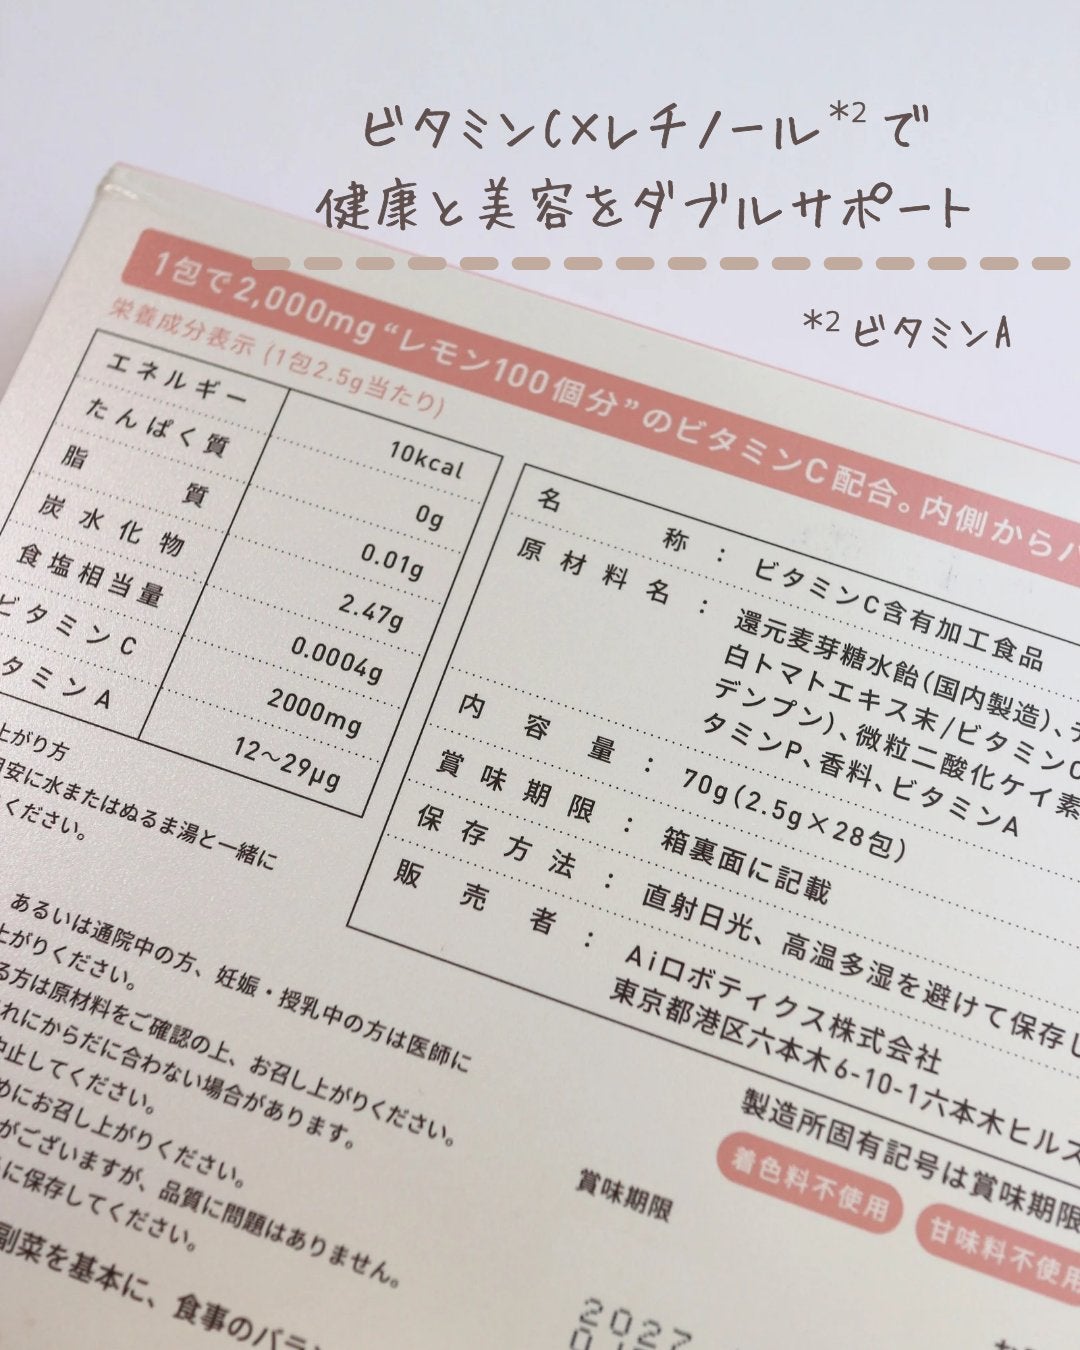 ビタミンC×レチノール*2 で
健康と美容をダブルサポート
*2 ビタミンA
1包で2,000mg“レモン100個分”のビタミンC配合。内側からハ
栄養成分表示 (1包2.5g当たり)
エネルギー 10kcal
たんぱく質 0g
脂質 0.01g
炭水化物 2.47g
食塩相当量 0.0004g
ビタミンC 2000mg
タミンA 12～29μg
名称：ビタミンC含有加工食品
原材料名：還元麦芽糖水飴(国内製造)、デ
白トマトエキス末/ビタミンC
デンプン)、微粒二酸化ケイ素
タミンP、香料、ビタミンA
内容量：70g(2.5g×28包)
賞味期限：箱裏面に記載
保存方法：直射日光、高温多湿を避けて保存し
販売者：Aiロボティクス株式会社
東京都港区六本木6-10-1六本木ヒルズ
製造所固有記号は賞味期限
着色料不使用
甘味料不使用
賞味期限
2027
上がり方
目安に水またはぬるま湯と一緒に
ください。
あるいは通院中の方、妊娠・授乳中の方は医師に
上がりください。
る方は原材料をご確認の上、お召し上がりください。
れにからだに合わない場合があります。
中止してください。
めにお召し上がりください。
がございますが、品質に問題はありません。
に保存してください。
副菜を基本に、食事のバラン